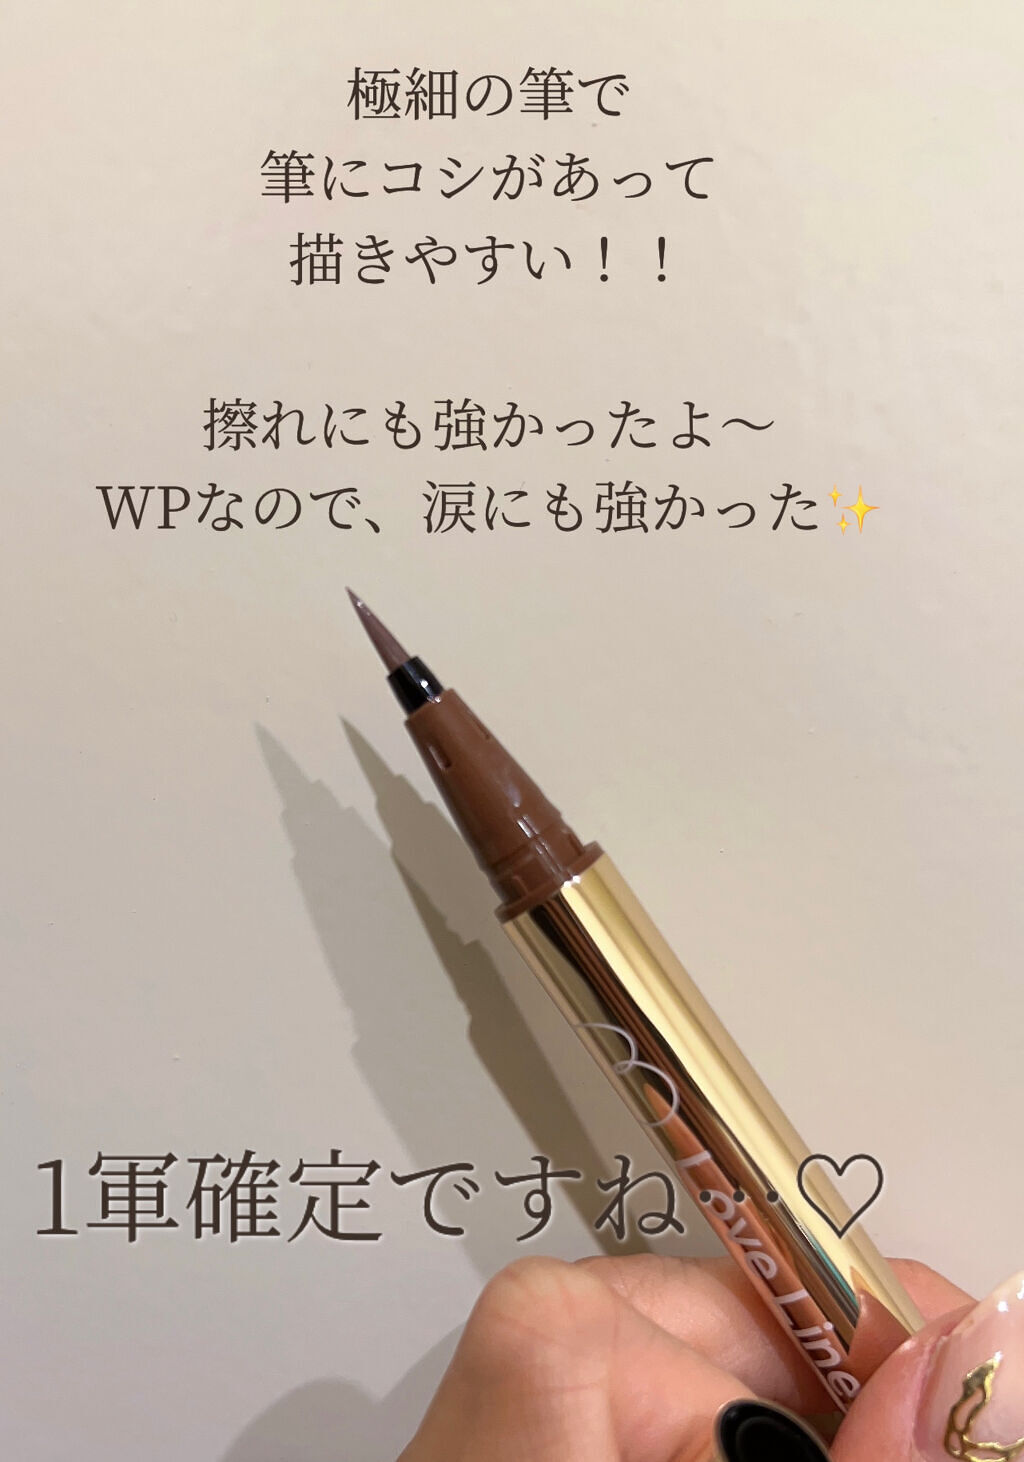 極細の筆で
筆にコシがあって
描きやすい！！
擦れにも強かったよ〜
WPなので、涙にも強かった✨
1軍確定ですね…♡
Love Liner